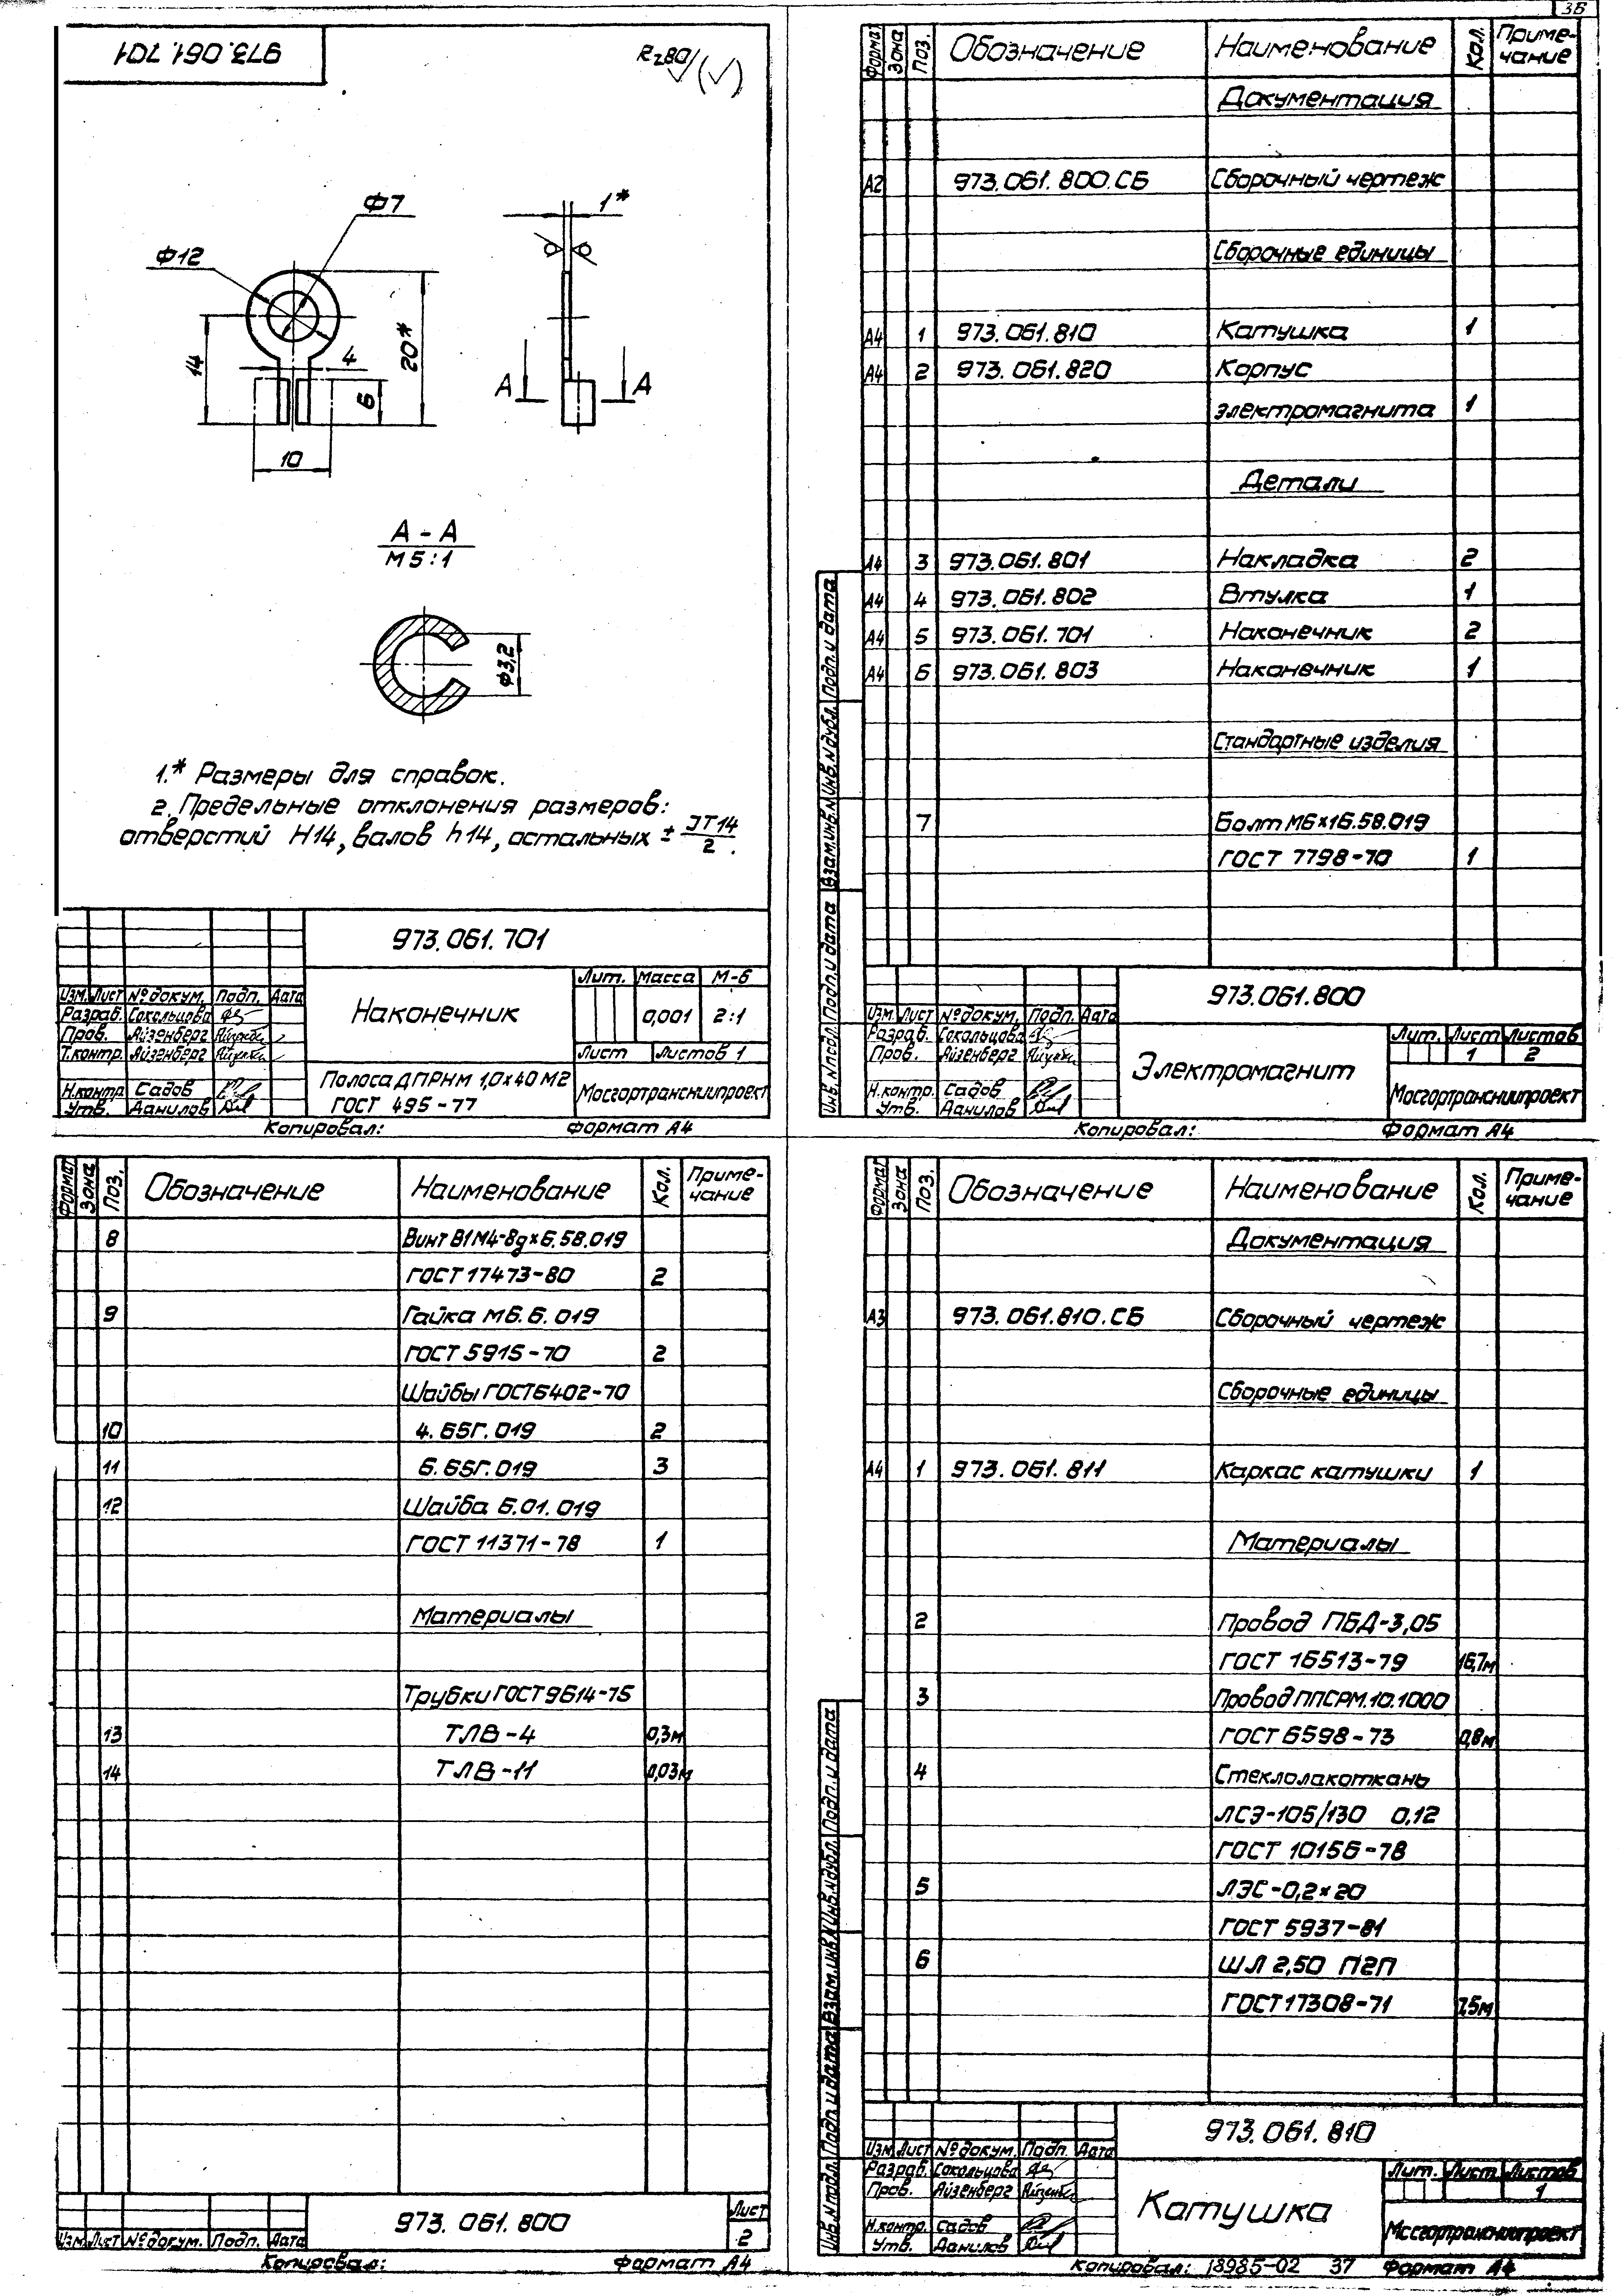 36
973.061.701
Rz80 (✓)
Ф7
Ф12
1*
14
4
20*
6
10
А
А
А - А
М 5:1
Ф3,2
1.* Размеры для справок.
2. Предельные отклонения размеров:
отверстий Н14, валов h14, остальных ± JT14/2.
973.061.701
Изм. Лист № докум. Подп. Дата
Разраб. Сокольцова
Пров. Айзенберг
Т.контр. Айзенберг
Н.контр. Садов
Утв. Данилов
Наконечник
Лит. Масса М-б
0,001 2:1
Лист Листов 1
Полоса ДПРНМ 1,0×40 М2
ГОСТ 495-77
Мосгортрансниипроект
Копировал: Формат А4
Формат Зона Поз. Обозначение Наименование Кол. Приме-
чание
Документация
А2 973.061.800.СБ Сборочный чертеж
Сборочные единицы
А4 1 973.061.810 Катушка 1
А4 2 973.061.820 Корпус
электромагнита 1
Детали
А4 3 973.061.801 Накладка 2
А4 4 973.061.802 Втулка 1
А4 5 973.061.701 Наконечник 2
А4 6 973.061.803 Наконечник 1
Стандартные изделия
7 Болт М6×16.58.019
ГОСТ 7798-70 1
Инв.№подл. Подп. и дата Взам.инв.№ Инв.№дубл. Подп. и дата
973.061.800
Изм. Лист № докум. Подп. Дата
Разраб. Сокольцова
Пров. Айзенберг
Н.контр. Садов
Утв. Данилов
Электромагнит
Лит. Лист Листов
1 2
Мосгортрансниипроект
Копировал: Формат А4
Формат Зона Поз. Обозначение Наименование Кол. Приме-
чание
8 Винт В1М4-8g×6.58.019
ГОСТ 17473-80 2
9 Гайка М6.6.019
ГОСТ 5915-70 2
Шайбы ГОСТ6402-70
10 4.65Г.019 2
11 6.65Г.019 3
12 Шайба 6.01.019
ГОСТ 11371-78 1
Материалы
Трубки ГОСТ9614-75
13 ТЛВ-4 0,3м
14 ТЛВ-11 0,03м
973.061.800
Лист
2
Изм. Лист № докум. Подп. Дата
Копировал: Формат А4
Формат Зона Поз. Обозначение Наименование Кол. Приме-
чание
Документация
А3 973.061.810.СБ Сборочный чертеж
Сборочные единицы
А4 1 973.061.811 Каркас катушки 1
Материалы
2 Провод ПБД-3,05
ГОСТ 16513-79 16,7м
3 Провод ППСРМ.10.1000
ГОСТ 6598-73 0,8м
4 Стеклолакоткань
ЛСЭ-105/130 0,12
ГОСТ 10156-78
5 ЛЭС-0,2×20
ГОСТ 5937-81
6 ШЛ 2,50 П2П
ГОСТ 17308-71 7,5м
Инв.№подл. Подп. и дата Взам.инв.№ Инв.№дубл. Подп. и дата
973.061.810
Изм. Лист № докум. Подп. Дата
Разраб. Сокольцова
Пров. Айзенберг
Н.контр. Садов
Утв. Данилов
Катушка
Лит. Лист Листов
1
Мосгортрансниипроект
Копировал: 18985-02 37 Формат А4